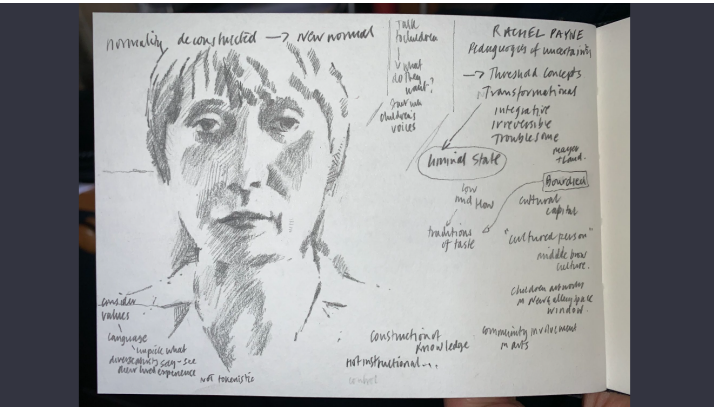 normality deconstructed → new normal
Talk
to children
what
do they
want?
children's
voices
RACHEL PAYNE
Pedagogies of uncertainty
→ Threshold concepts
Transformational
integrative
irreversible
Troublesome
meyer
+ Land.
Liminal State
low
mid brow
traditions
of taste
Bourdieu
cultural
capital
"cultured person"
middle brow
culture.
children artworks
in gallery space
window.
community involvement
in arts
construction of
knowledge
Not instructional...
control
consider
values
language
unpick what
say - see
lived experience
not tokenistic